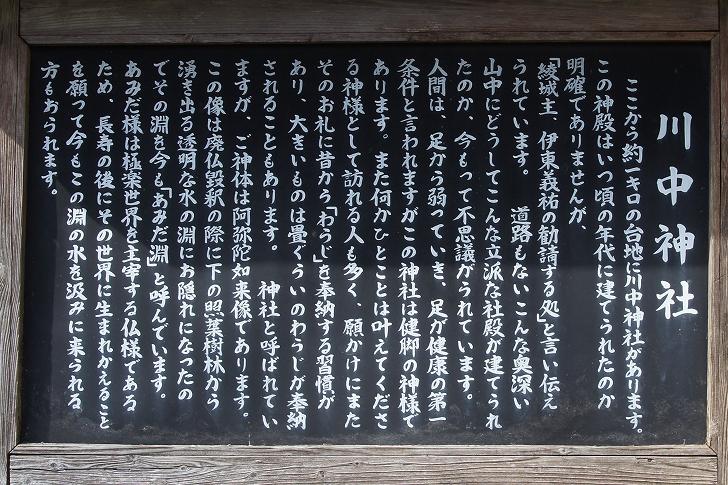 川中神社
ここから約一キロの台地に川中神社があります。
この神殿はいつ頃の年代に建てられたのか
明確でありませんが、
「綾城主、伊東義祐の勧請する処」と言い伝え
られています。　道路もないこんな奥深い
山中にどうしてこんな立派な社殿が建てられ
たのか、今もって不思議がられています。
人間は、足から弱っていき、足が健康の第一
条件と言われますがこの神社は健脚の神様で
あります。また何かひとことは叶えてくださ
る神様として訪れる人も多く、願かけにまた
そのお礼に昔から「わらじ」を奉納する習慣が
あり、大きいものは畳ぐらいのわらじが奉納
されることもあります。　神社と呼ばれてい
ますが、ご神体は阿弥陀如来像であります。
この像は廃仏毀釈の際に下の照葉樹林から
湧き出る透明な水の淵にお隠れになったの
でその淵を今も「あみだ淵」と呼んでいます。
あみだ様は極楽世界を主宰する仏様である
ため、長寿の後にその世界に生まれかえること
を願って今もこの淵の水を汲みに来られる
方もおられます。